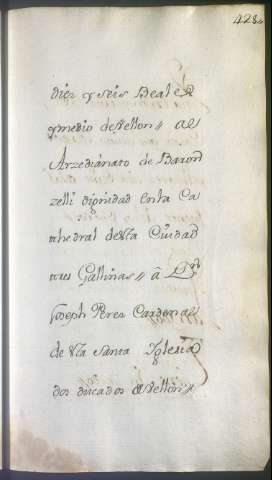 428
diez y seis Reales
y medio de Vellon,, al
Arzedianato de Baron
zelli dignidad en la Ca
thedral de esta Ciudad
tres Gallinas,, â Dn
Joseph Perez Cardenal
de esta Santa Iglesia
dos ducados de vellon,,